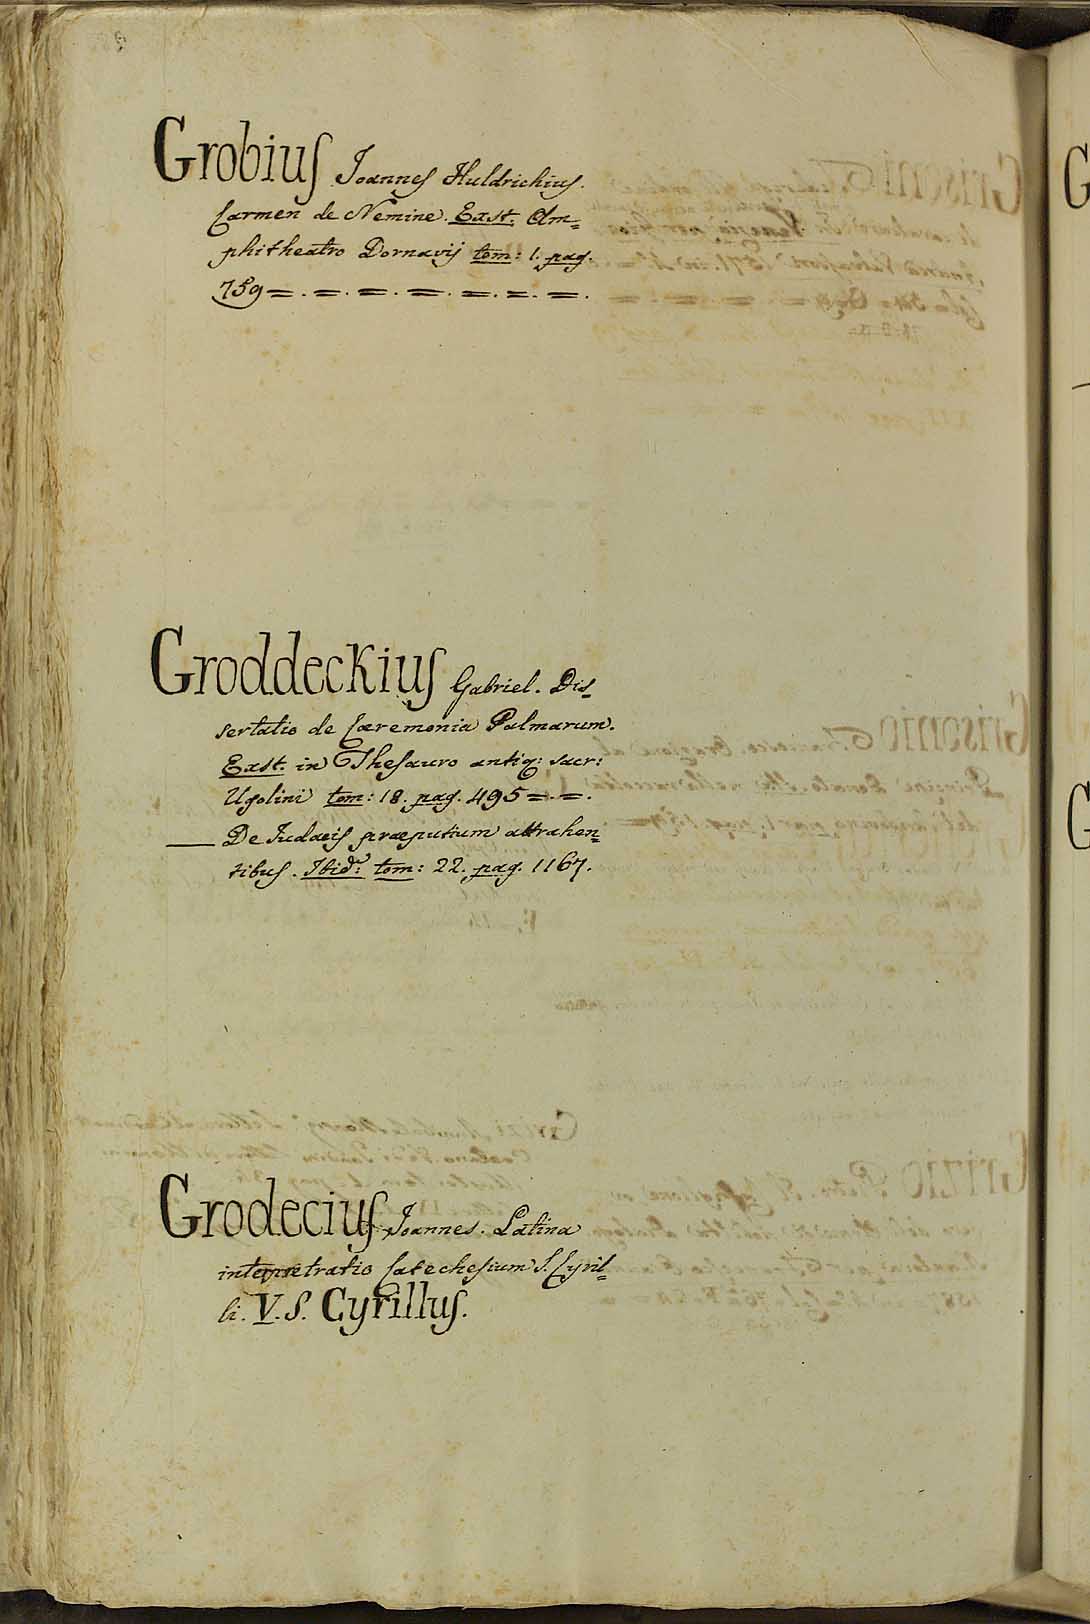 Grobius Joannes Huldrichius.
Carmen de Nemine. Exst. Am=
phitheatro Dornavij tom: 1. pag.
759 = . = . = . = . = . = . = .
Groddeckius Gabriel. Dis=
sertatio de Cæremonia Palmarum.
Exst. in Thesauro antiq: sacr:
Ugolini tom: 18. pag. 495 = . = .
— De Judaeis præputium attrahen=
tibus. Ibid: tom: 22. pag. 1167.
Grodecius Joannes. Latina
interpretratio Catechesium S. Cyril=
li. V. S. Cyrillus.